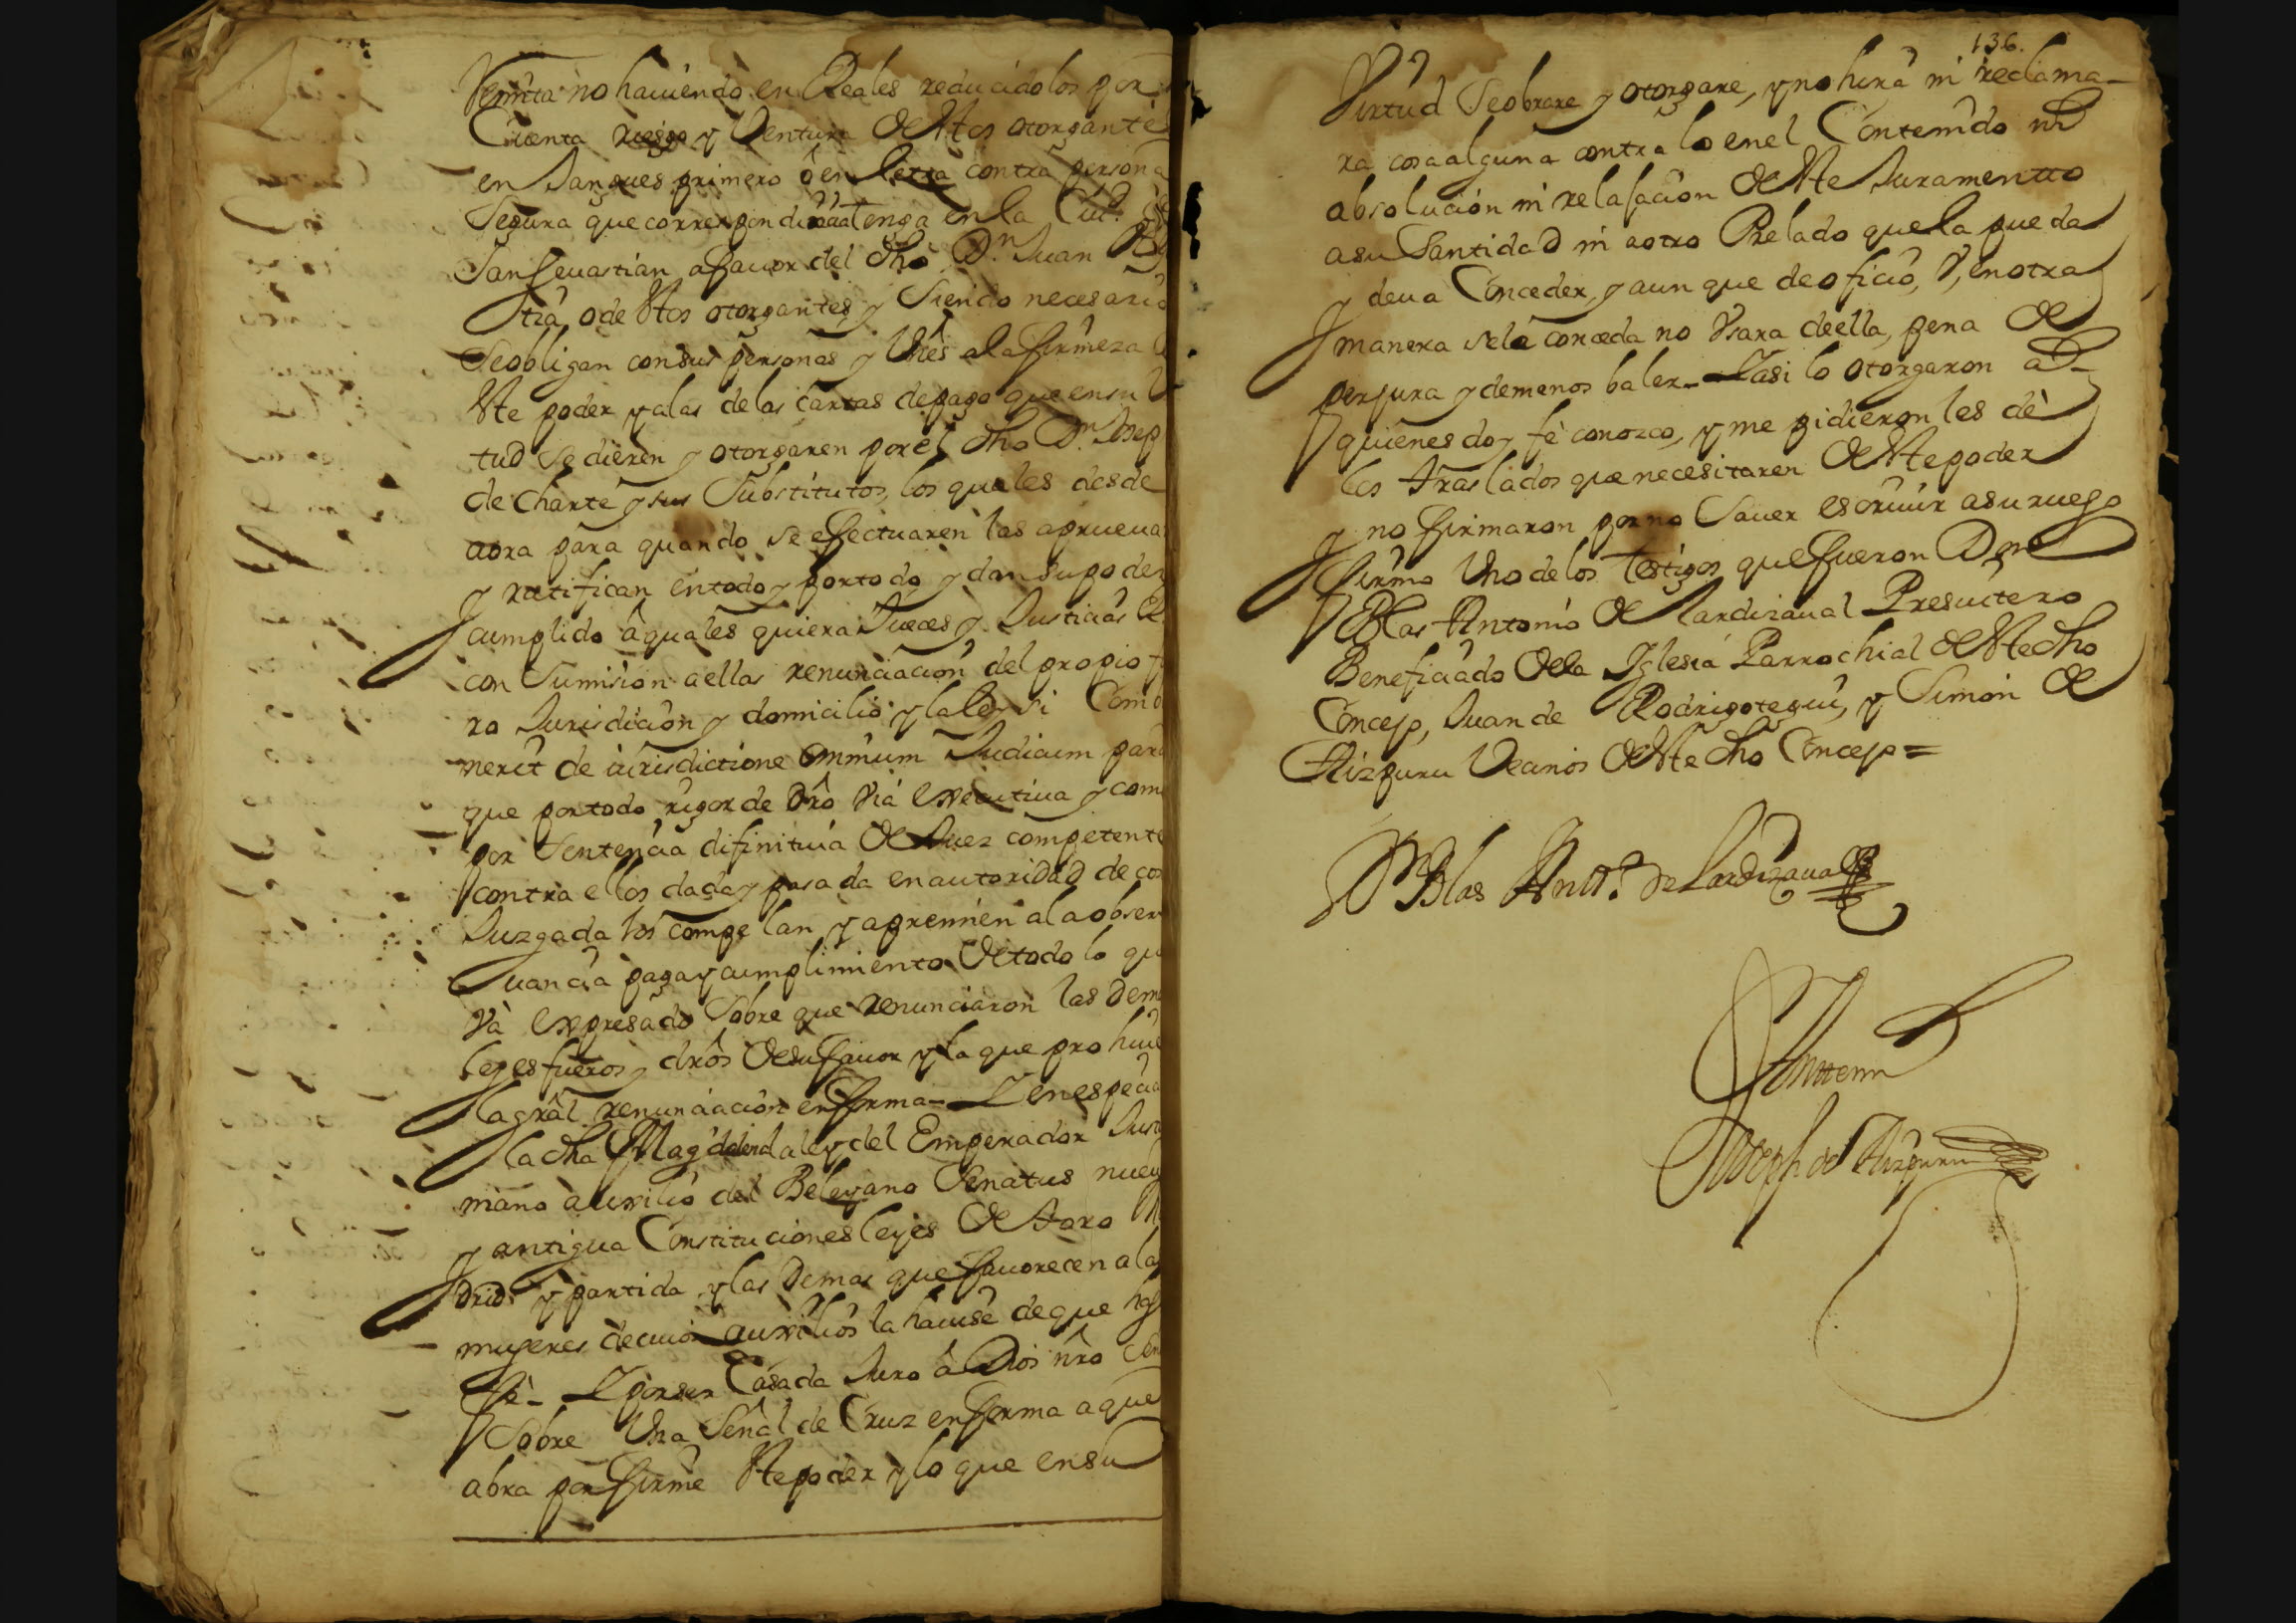 Remita no haviendo en Reales reducidolos por
Cuenta riesgo y Ventura de Stos otorgantes
en Danques primero ô en letra contra persona
Segura que correspondiencia tenga en la Ciud. de
San Sevastian a favor del dho Dn. Juan
tia, o de Stos otorgantes, y Siendo necesario
Se obligan con sus personas y Vnês a la firmeza
Ste poder y a las de las cartas de pago que en su V
tud Se dieren y otorgaren por el dho Dn. Josep
de Charte y sus Substitutos, los quales desde
aora para quando se efectuaren las aprueva
y ratifican en todo y por todo y dan su poder
cumplido â quales quiera Jueces y Justicias
con Sumision a ellas renunciacion del propio f
ro Jurisdicion y domicilio y la ley si Comb
nerit de iurisdictione omnium Judicum para
que por todo rigor de drô via executiva y como
por Sentencia difinitiva de Juez competente
contra ellos dada y pasada en autoridad de cos
Juzgada los compelan y apremien a la obser
vancia paga y cumplimiento de todo lo que
Và expresado Sobre que renunciaron las dema
leyes fueros y drôs de su favor y la que prohive
la grâl renunciacion en forma = Y en especial
la dha Magdalena la ley del Emperador Justi
niano auxilio del Beleyano Senatus nueva
y antigua Constituciones leyes de toro
drid y partida y las demas que favorecen a las
mugeres de cuios auxilios la havise de que
fè = Y por ser Casada Juro â Dios nrô Señ
Sobre Una Señal de Cruz en forma a que
abra por firme Ste poder y lo que en su
136.
Virtud Se obrare y otorgare, y no hirâ ni reclama-
ra cosa alguna contra lo en el Contenido ni
absolucion ni relajacion de Ste Juramentto
a su Santidad ni a otro Prelado que la pueda
y deva Conceder, y aun que de oficio, V, en otra
manera se la conceda no Vsara de ella, pena de
perjura y de menos baler = Y asi lo otorgaron a
quienes doy fè conozco, y me pidieron les dè
los traslados que necesitaren de Ste poder
y no firmaron por no Saver escrivir a su ruego
firmo Uno de los testigos que fueron Dn
Blas Antonio de Lardizaval Presvitero
Beneficiado de la Iglesia Parrochial de Ste dho
Concejo, Juan de Rodrigotegui, y Simon de
Aizpuru Vecinos de Ste dho Concejo =
Dn Blas Antto. de Lardizaval
Antte mi
Joseph de Aizpuru